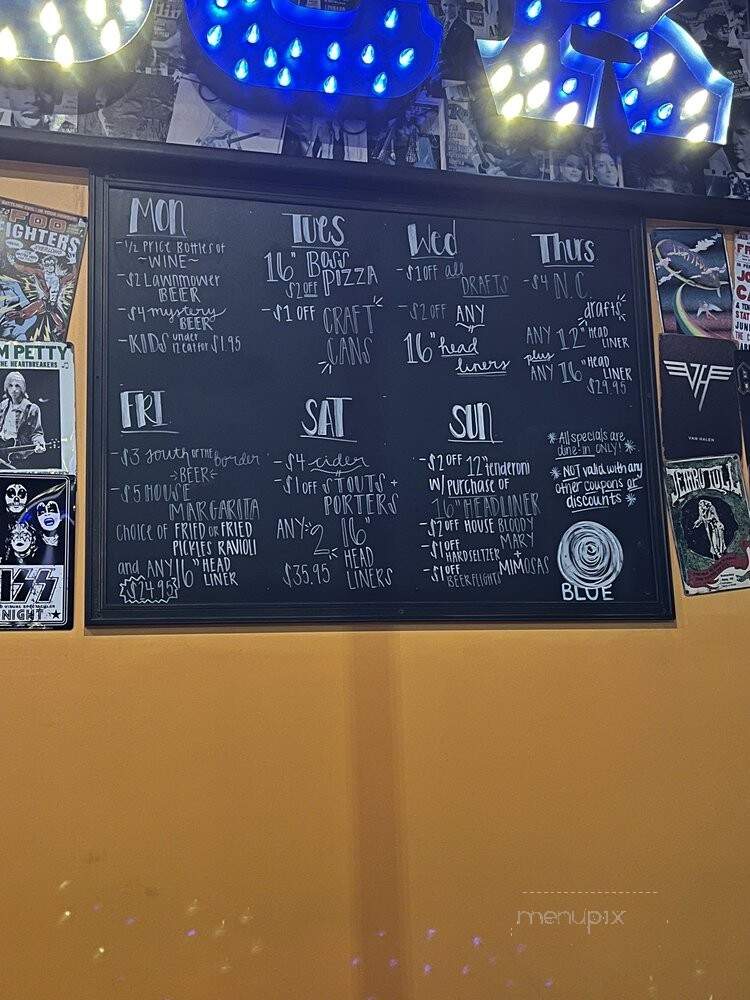 MON
-1/2 PRICE BOTTLES OF
~WINE~
-$2 Lawnmower
BEER
-$4 mystery
BEER
-KIDS under
12 eat for $1.95
TUES
16" BOGS
$2 OFF PIZZA
-$1 OFF CRAFT
CANS
Wed
-$1 OFF all
DRAFTS
-$2 OFF ANY
16" head
liners
THURS
-$4 N.C.
drafts
ANY 12" HEAD
LINER
plus
ANY 16" HEAD
LINER
$29.95
FRI
-$3 south OF THE border
BEER
-$5 HOUSE
MARGARITA
CHOICE OF FRIED OR FRIED
PICKLES RAVIOLI
and ANY 16" HEAD
LINER
$24.95
SAT
-$4 cider
-$1 OFF STOUTS +
PORTERS
ANY 2 16"
HEAD
LINERS
$35.95
SUN
-$2 OFF 12" tenderoni
W/ PURCHASE OF
16" HEADLINER
-$2 OFF HOUSE BLOODY
MARY
-$1 OFF
HARD SELTZER +
MIMOSAS
-$1 OFF
BEER FLIGHTS
*All specials are
done-in ONLY! *
*NOT valid with any
other coupons or
discounts *
BLUE
FOO
FIGHTERS
M PETTY
THE HEARTBREAKERS
KISS
NIGHT
VH
VAN HALEN
JETHRO TULL
menupix